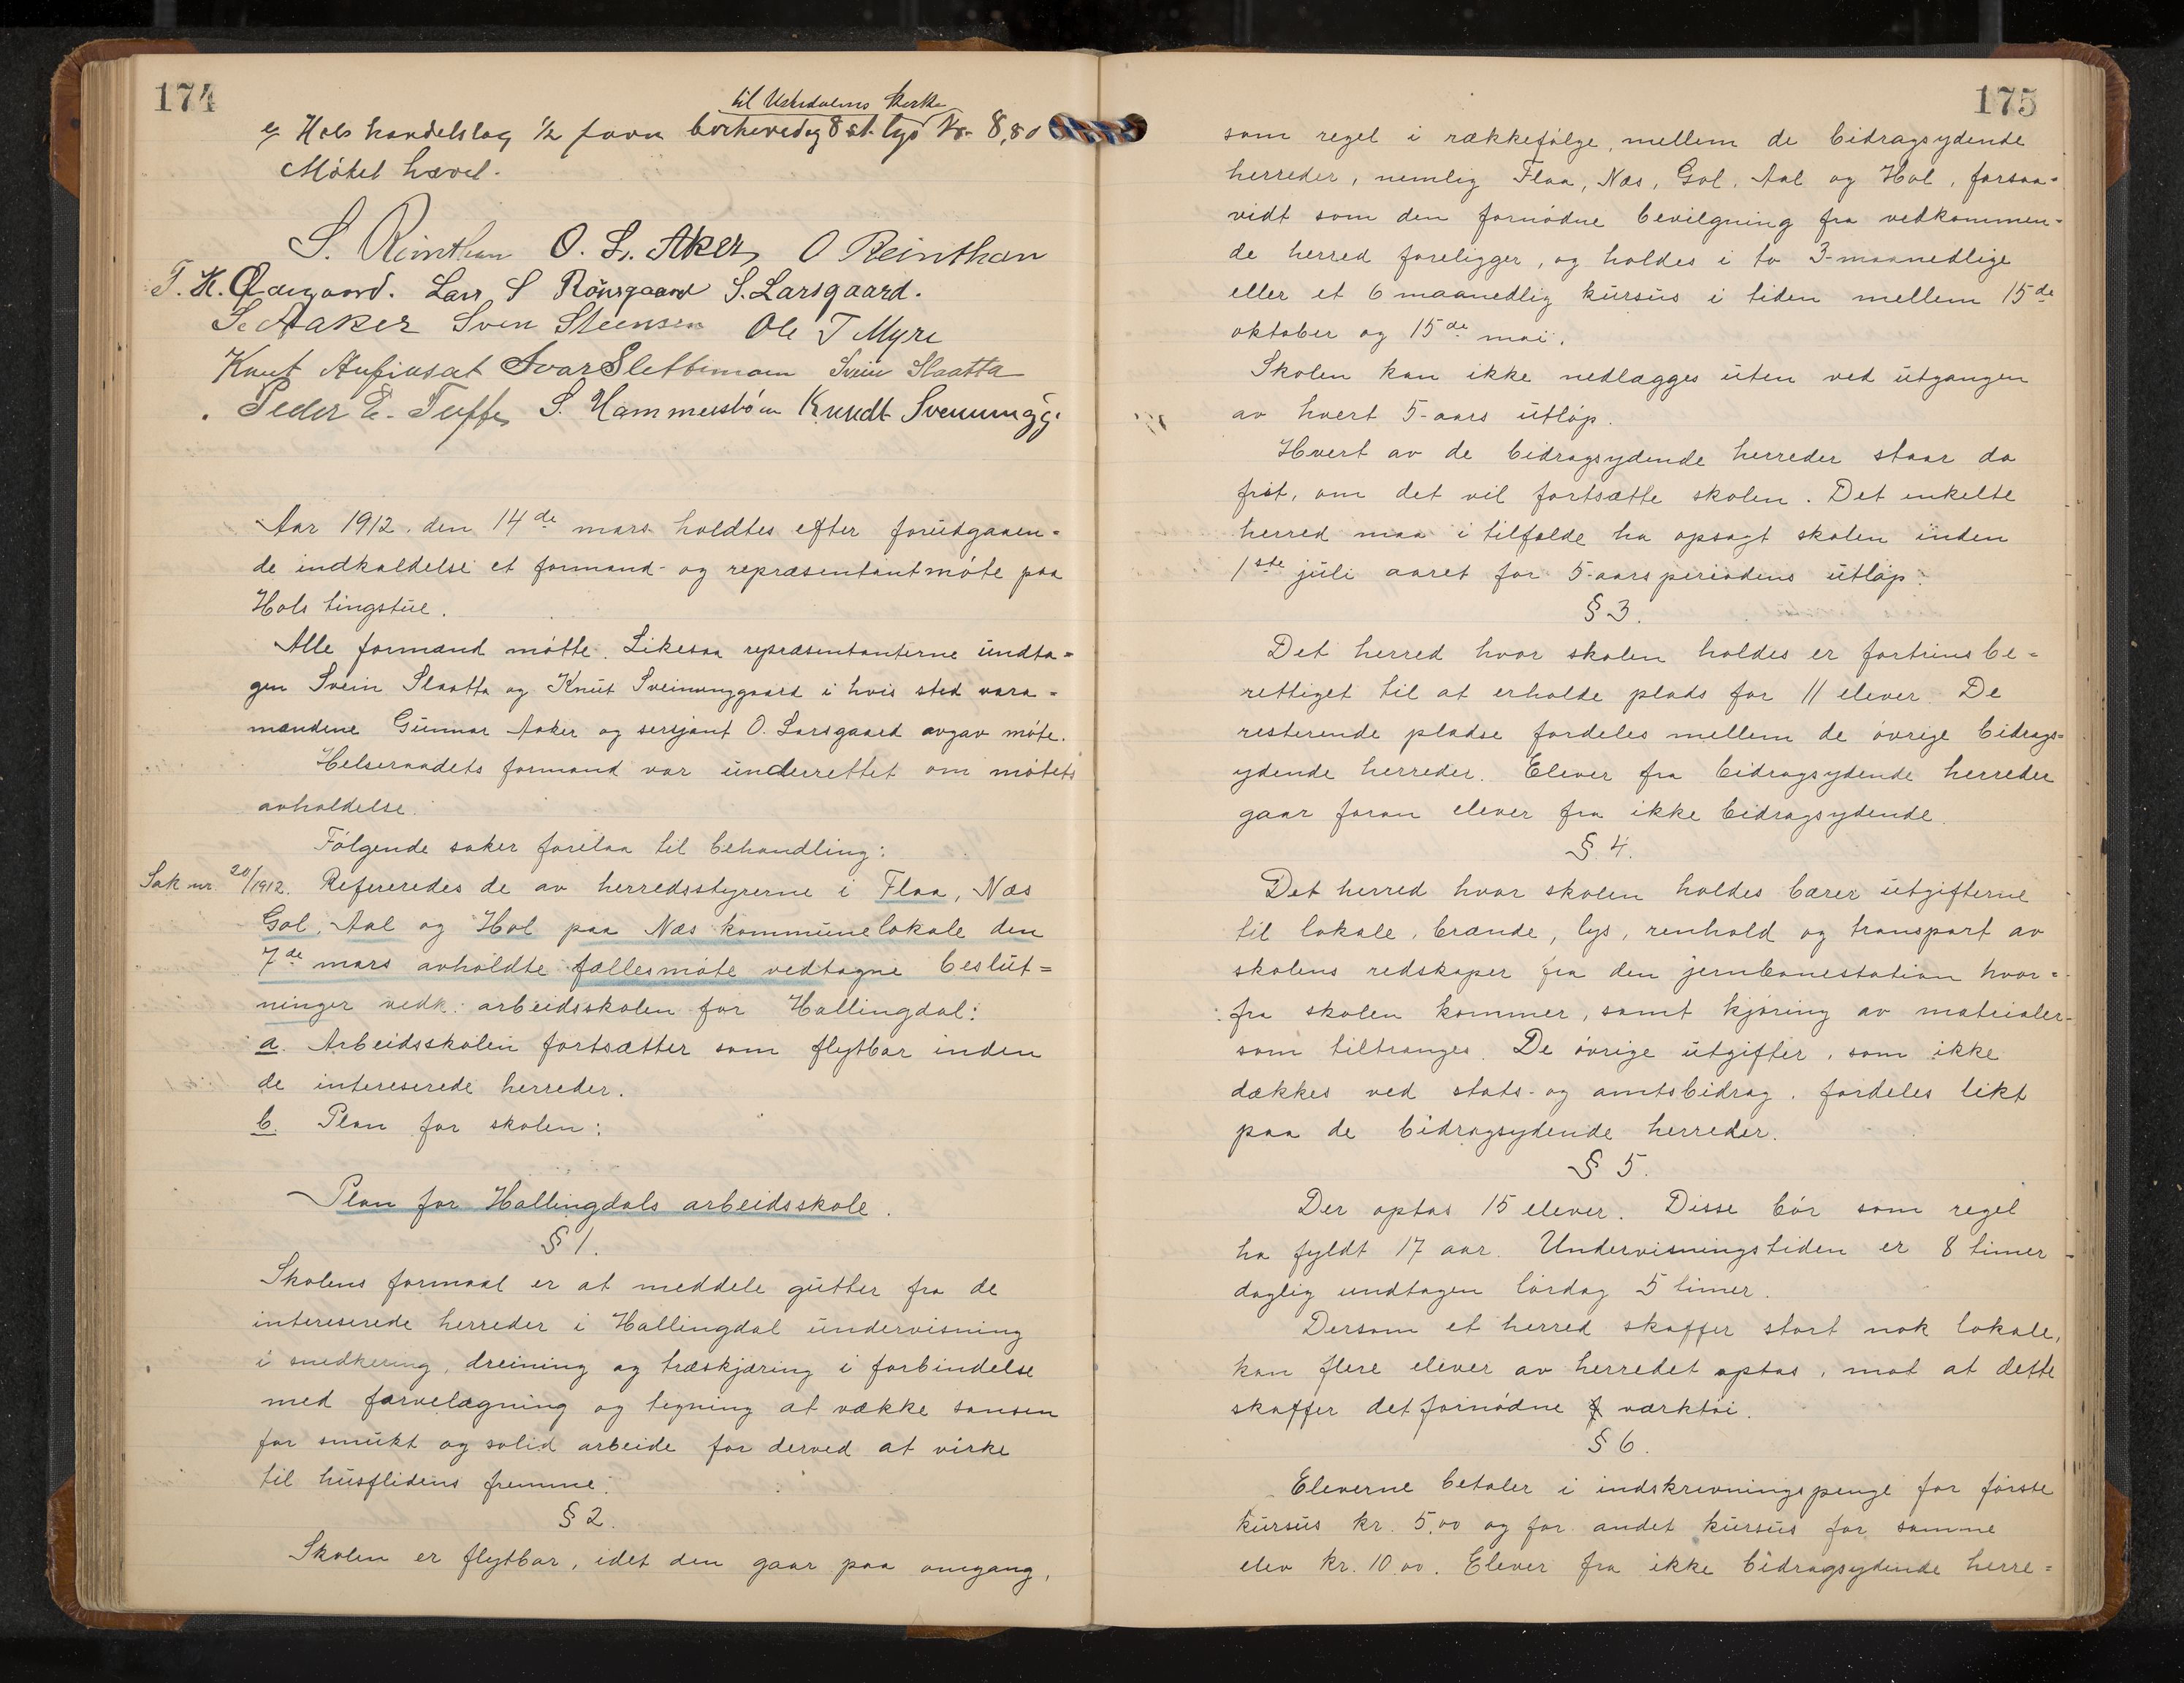 174
til Ustedalens kirke
Hols handelslag ½ favn birkeved og 8 st. lys Kr. 8,80
Møtet hævet.
S. Reinthan O. L. Aker O Reinthan
T. K. Lars S Rønsgaard S. Larsgaard.
S. Aaker Sven Steensen Ole T Myre
Knut Ivar Slettemoen Svein Slaatta
Peder E. Tuffe S. Hammersbøen Knudt
Aar 1912, den 14de mars holdtes efter forutgaaen=
de indkaldelse et formand- og repræsentantmøte paa
Hols tingstue.
Alle formænd møtte. Likesaa repræsentanterne undta=
gen Svein Slaatta og Knut Sveinunggaard i hvis sted vara=
mændene Gunnar Aaker og sersjant O. Larsgaard avgav møte.
Helseraadets formand var underrettet om møtets
avholdelse.
Følgende saker forelaa til behandling:
Sak nr. 20/1912. Refereredes de av herredsstyrerne i Flaa, Næs
Gol, Aal og Hol paa Næs kommunelokale den
7de mars avholdte fællesmøte vedtagne beslut=
ninger vedk. arbeidsskolen for Hallingdal:
a. Arbeidsskolen fortsætter som flytbar inden
de intereserede herreder.
b. Plan for skolen:
Plan for Hallingdals arbeidsskole.
§ 1.
Skolens formaal er at meddele gutter fra de
intereserede herreder i Hallingdal undervisning
i snedkering, dreining og træskjæring i forbindelse
med farvelægning og tegning at vække sansen
for smukt og solid arbeide for derved at virke
til husflidens fremme.
§ 2.
Skolen er flytbar, idet den gaar paa omgang,
175
som regel i rækkefølge, mellem de bidragsydende
herreder, nemlig Flaa, Næs, Gol, Aal og Hol, forsaa=
vidt som den fornødne bevilgning fra vedkommen=
de herred foreligger, og holdes i to 3-maanedlige
eller et 6 maanedlig kursus i tiden mellem 15de
oktober og 15de mai.
Skolen kan ikke nedlægges uten ved utgangen
av hvert 5-aars utløp.
Hvert av de bidragsydende herreder staar da
frit, om det vil fortsætte skolen. Det enkelte
herred maa i tilfælde ha opsagt skolen inden
1ste juli aaret for 5-aarsperiodens utløp.
§ 3.
Det herred hvor skolen holdes er fortrinsbe=
rettiget til at erholde plads for 11 elever. De
resterende pladse fordeles mellem de øvrige bidrags=
ydende herreder. Elever fra bidragsydende herreder
gaar foran elever fra ikke bidragsydende.
§ 4.
Det herred hvor skolen holdes bærer utgifterne
til lokale, brænde, lys, renhold og transport av
skolens redskaper fra den jernbanestation hvor=
fra skolen kommer, samt kjøring av materialer
som tiltrænges. De øvrige utgifter, som ikke
dækkes ved stats- og amtsbidrag, fordeles likt
paa de bidragsydende herreder.
§ 5.
Der optas 15 elever. Disse bør som regel
ha fyldt 17 aar. Undervisningstiden er 8 timer
daglig undtagen lørdag 5 timer.
Dersom et herred skaffer stort nok lokale,
kan flere elever av herredet optas, mot at dette
skaffer det fornødne værktøi.
§ 6.
Eleverne betaler i indskrivningspenge for første
kursus kr. 5,00 og for andet kursus for samme
elev kr. 10,00. Elever fra ikke bidragsydende herre=